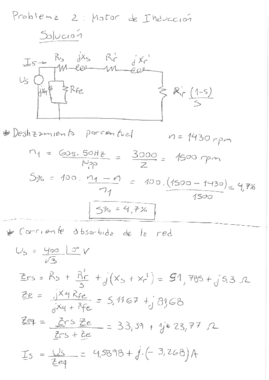 Problema 2: Motor de Inducción
Solución
Is Rs jXs Rr' jXr'
Us jXμ Rfe Rr'(1-s)/s
* Deslizamiento porcentual n = 1430 rpm
n1 = 60s · 50Hz / Npp = 3000 / 2 = 1500 rpm
S% = 100 · (n1 - n) / n1 = 100 · (1500 - 1430) / 1500 = 4,7%
S% = 4,7%
* Corriente absorbida de la red
Us = 400 |0° / √3 V
Zrs = Rs + Rr'/s + j(Xs + Xr') = 51,785 + j5,3 Ω
Ze = jXμ Rfe / (jXμ + Rfe) = 5,1167 + j81,68
Zeq = Zrs Ze / (Zrs + Ze) = 33,39 + j·23,77 Ω
Is = Us / Zeq = 4,5898 + j·(-3,268) A